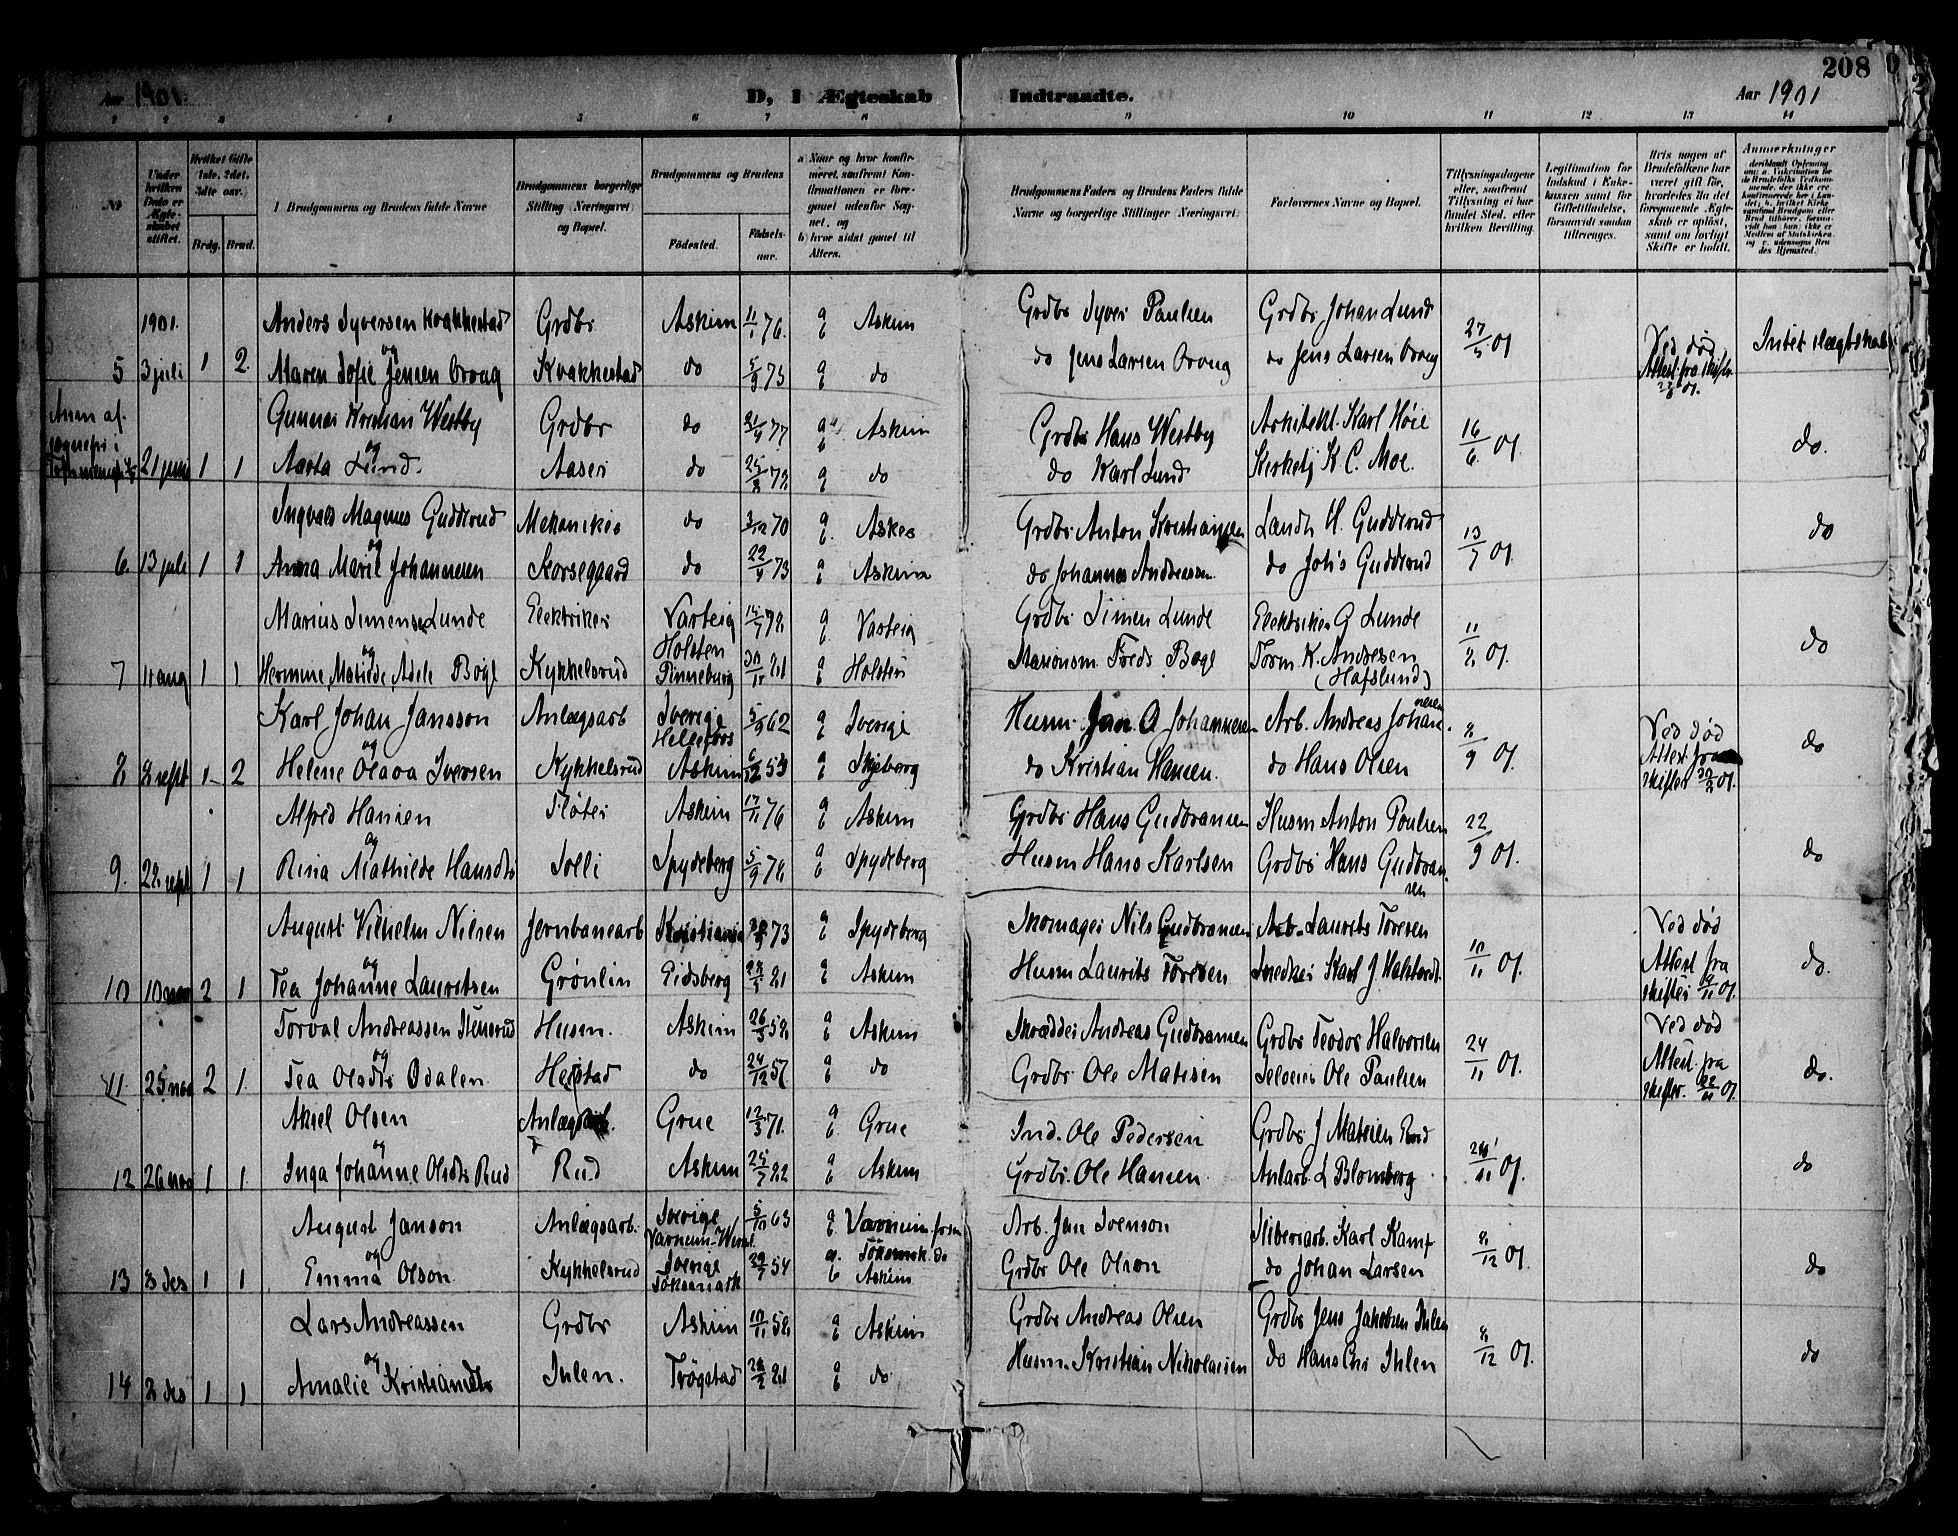 208
Aar 1901. D, I Ægteskab Indtraadte. Aar 1901
1 2 3 4 5 6 7 8 9 10 11 12 13 14
No
Under hvilken Dato er Ægteskabet stiftet.
Hvilket Gifte (1ste, 2det, 3die osv.)
Brdg. Brud.
Brudgommens og Brudens fulde Navne
Brudgommens borgerlige Stilling (Næringsvei) og Bopæl.
Brudgommens og Brudens
Fødested. Fødsels-aar.
a Naar og hvor konfirmeret, samfremt Konfirmationen er foregaaet udenfor Sognet, og
b) hvor sidst gaaet til Alters.
Brudgommens Faders og Brudens Faders fulde Navne og borgerlige Stillinger (Næringsvei)
Forlovernes Navne og Bopæl.
Tillysningsdagene eller, samfremt Tillysning ei har fundet Sted, efter hvilken Bevilling.
Legitimation for Indskud i Enkekassen samt for Giftetilladelse, forsaavidt saadan tiltrænges.
Hvis nogen af Brudefolkene har været gift før, hvorledes da det foregaaende Ægteskab er opløst, samt om lovligt Skifte er holdt.
Anmærkninger
1901. Anders Syversen Kvakkestad Grdbr Askim 11/1 76. a b Askim Grdbr Syver Paulsen Grdbr Johan Lund 27/5 01 Ved død Intet slægtskab
5 3 juli 1 2 og Maren Sofie Jensen Vrong Kvakkestad do 5/9 73 a b do do Jens Larsen Vrong do Jens Larsen Vrong Attest fra skifter
Gunnar Kristian Westby Grdbr do 77 a b Askim Grdbr Hans Westby Arkitekt Karl Høie 16/6 01. do.
21 juni 1 1 og Aasta Lund. Aaser do 25/8 78 a b do do Karl Lund Kirketj K C. Moe.
Ingvald Magnus Gudderud Mekaniker do 3/12 70 a b. Askim Grdbr Anton Kristiansen Landh H. Gudderud 13/7 01 do
6. 13 juli 1 1 og Anna Maril Johannesen Korsegaard do 22/4 73 a b Askim do Johannes Andreassen do Johs Gudderud
Marius Simensen Lunde Elektriker Varteig 14/7 78 a b Varteig Grdbr Simen Lunde Elektriker G Lunde 11/8 01. do
7 11 aug 1 1 og Hermine Matilde Adele Bögl Kykkelsrud Holsten Pinneburg 81 a b Holsten Torm. K. Andresen (Hafslund)
Karl Johan Jansson Anlægsarb Sverige 5/9 62 a b Sverige Husm. Jan A Johannesen Arb. Andreas Johannesen 8/9 01. Ved død do
8 8 sept 1 2 og Helene Olava Iversen Kykkelsrud Askim 6/12 53 a b Skjeberg do Kristian Hansen. do Hans Olsen Attest fra skifter
Alfred Hansen Fløter Askim 17/11 76 a b Askim Grdbr Hans Gudbransen Husm Anton Poulsen 22/9 01. do
9. 22 sept 1 1 og Rina Mathilde Hansdtr Solli Spydeberg 5/9 78 a b Spydeberg Husm Hans Karlsen Grdbr Hans Gudbransen
August Vilhelm Nilsen Jernbanearb Kristiania 73 a b Spydeberg Skomager Nils Gudbransen Arb. Laurits Toresen 10/11 01. Ved død do.
10 10 nov 2 1 og Tea Johanne Lauritsen Grönlin Eidsberg 81 a b Askim Husm Laurits Toresen Snedker Karl J. Attest fra skifter 01.
Torval Andreassen Stensrud Husm. Askim 26/3 58 a b Askim Skrædder Andreas Gudbransen Grdbr Teodor Halvorsen 24/11 01. Ved død do.
11. 25 nov 2 1 og Tea Olsdtr Ødalen Heistad do 24/12 57 a b do Grdbr Ole Matisen Seloeier Ole Paulsen Attest fra skifter. 01.
Aksel Olsen Anlægsarb. Grue 12/3 71. a b Grue Ind. Ole Pedersen Grdbr J Matsien Rud 01. do
12 26 nov 1 1. og Inga Johanne Olsdtr Rud Rud Askim 25/7 82 a b Askim Grdbr Ole Hansen. Anlarb. L Blomberg
August Janson Anlægsarb. Sverige 5/10 63 a b Arb. Jan Svenson Sliberiarb. Karl Kamf 8/12 01. do
13 8 des 1 1 og Emma Olson. Kykkelsrud Sverige Töksmark 29/7 54 a. Töksmk. do b Askim Grdbr Ole Olson do Johan Larsen
Lars Andreassen Grdbr Askim 10/11 58 a b Askim Grdbr Andreas Olsen Grdbr Jens Jakobsen Ihlen 8/12 01. do
14 8 des 1 1 og Amalie Kristiansdtr Ihlen. Trøgstad 81 a b do Husm. Kristian Nikolaisen do Hans Chr Ihlen